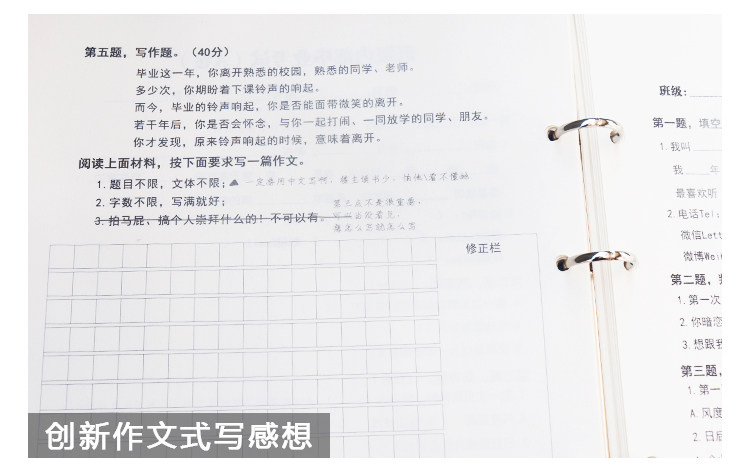 第五题，写作题。（40分）
毕业这一年，你离开熟悉的校园，熟悉的同学、老师。
多少次，你期盼着下课铃声的响起。
而今，毕业的铃声响起，你是否能面带微笑的离开。
若干年后，你是否会怀念，与你一起打闹、一同放学的同学、朋友。
你才发现，原来铃声响起的时候，意味着离开。
阅读上面材料，按下面要求写一篇作文。
1. 题目不限，文体不限；▲ 一定要用中文写啊，楼主读书少，
2. 字数不限，写满就好；
3. 拍马屁、搞个人崇拜什么的！不可以有。
爱怎么写就怎么写
修正栏
班级：
第一题，填空
1. 我叫
我 年
最喜欢听
2. 电话Tel:
微信Lett
微博Wei
第二题，
1. 第一次
2. 你暗恋
3. 想跟我
第三题，
1. 第一
A. 风度
2. 日后
创新作文式写感想